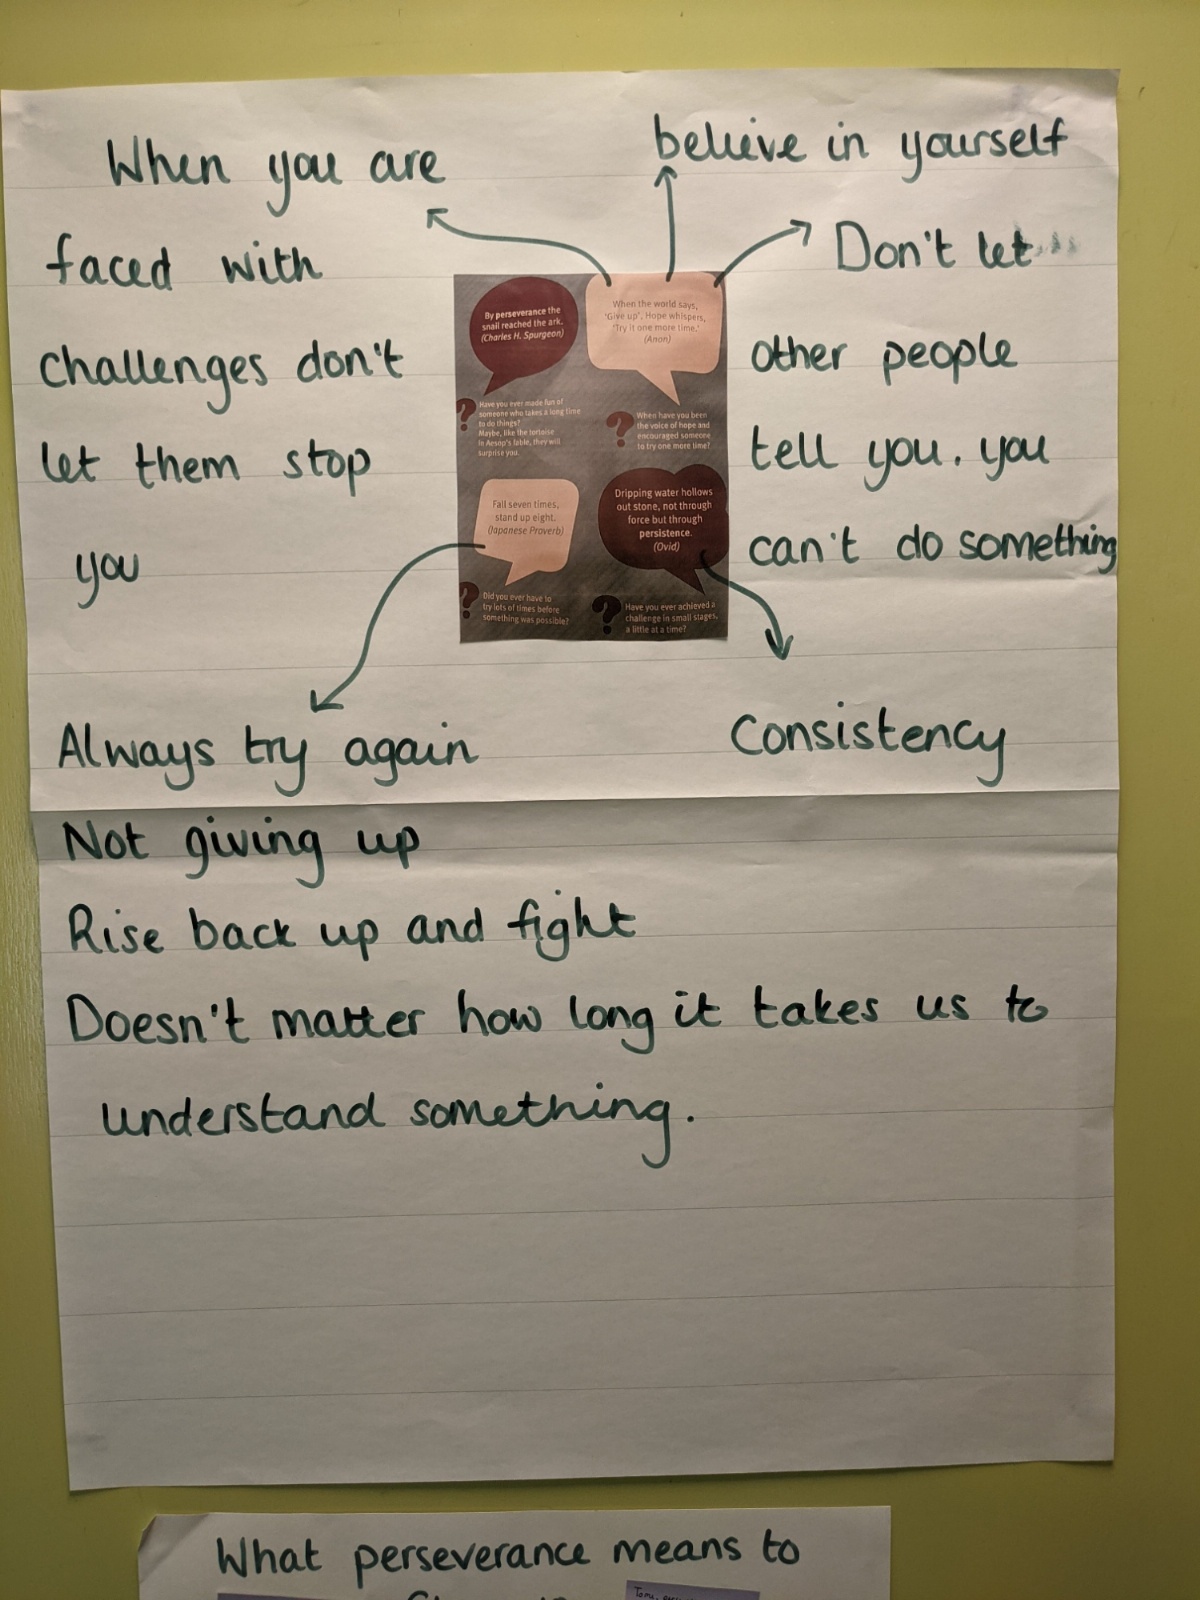 When you are
faced with
challenges don't
let them stop
you
believe in yourself
Don't let
other people
tell you. you
can't do something
By perseverance the
snail reached the ark.
(Charles H. Spurgeon)
Have you ever made fun of
someone who takes a long time
to do things?
Maybe, like the tortoise
in Aesop's fable, they will
surprise you.
When the world says,
'Give up', Hope whispers,
'Try it one more time.'
(Anon)
?
?
When have you been
the voice of hope and
encouraged someone
to try one more time?
Fall seven times,
stand up eight.
(Japanese Proverb)
?
Did you ever have to
try lots of times before
something was possible?
Dripping water hollows
out stone, not through
force but through
persistence.
(Ovid)
?
Have you ever achieved a
challenge in small stages,
a little at a time?
Always try again
Consistency
Not giving up
Rise back up and fight
Doesn't matter how long it takes us to
understand something.
What perseverance means to